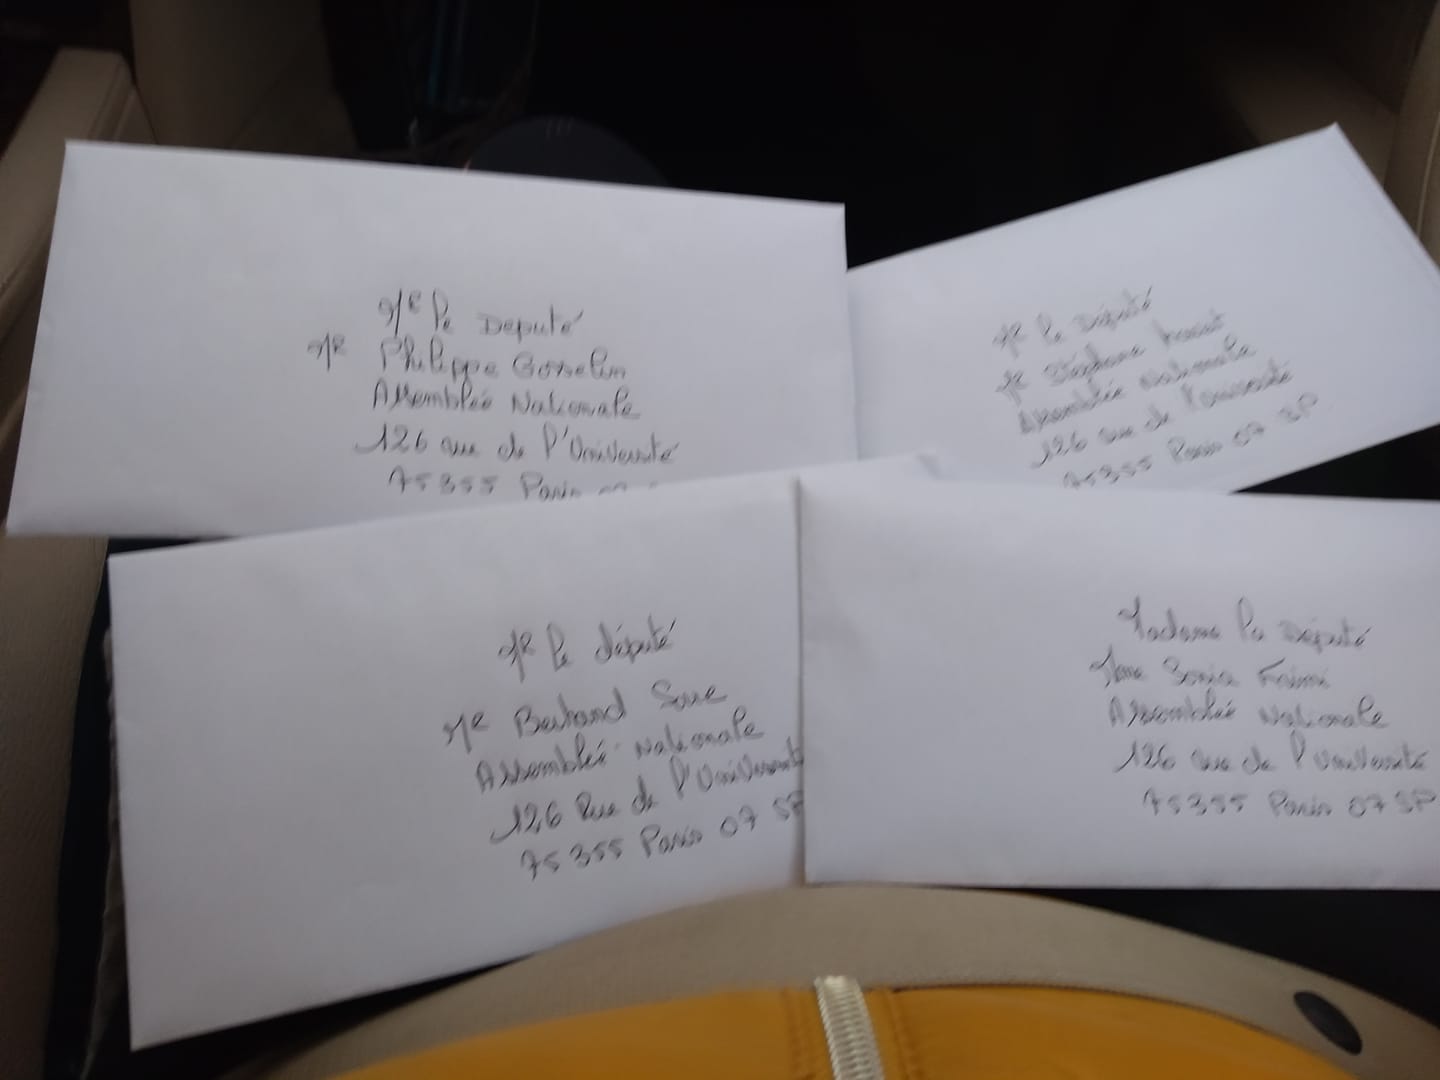 Mr le Député
Mr Philippe Gosselin
Assemblée Nationale
126 rue de l'Université
75355 Paris 07
Mr le Député
Mr Stéphane
Assemblée Nationale
126 rue de l'Université
75355 Paris 07 SP
Mr le député
Mr Bertrand Sorre
Assemblée Nationale
126 Rue de l'Université
75355 Paris 07 SP
Madame la Député
Mme Sonia Krimi
Assemblée Nationale
126 rue de l'Université
75355 Paris 07 SP